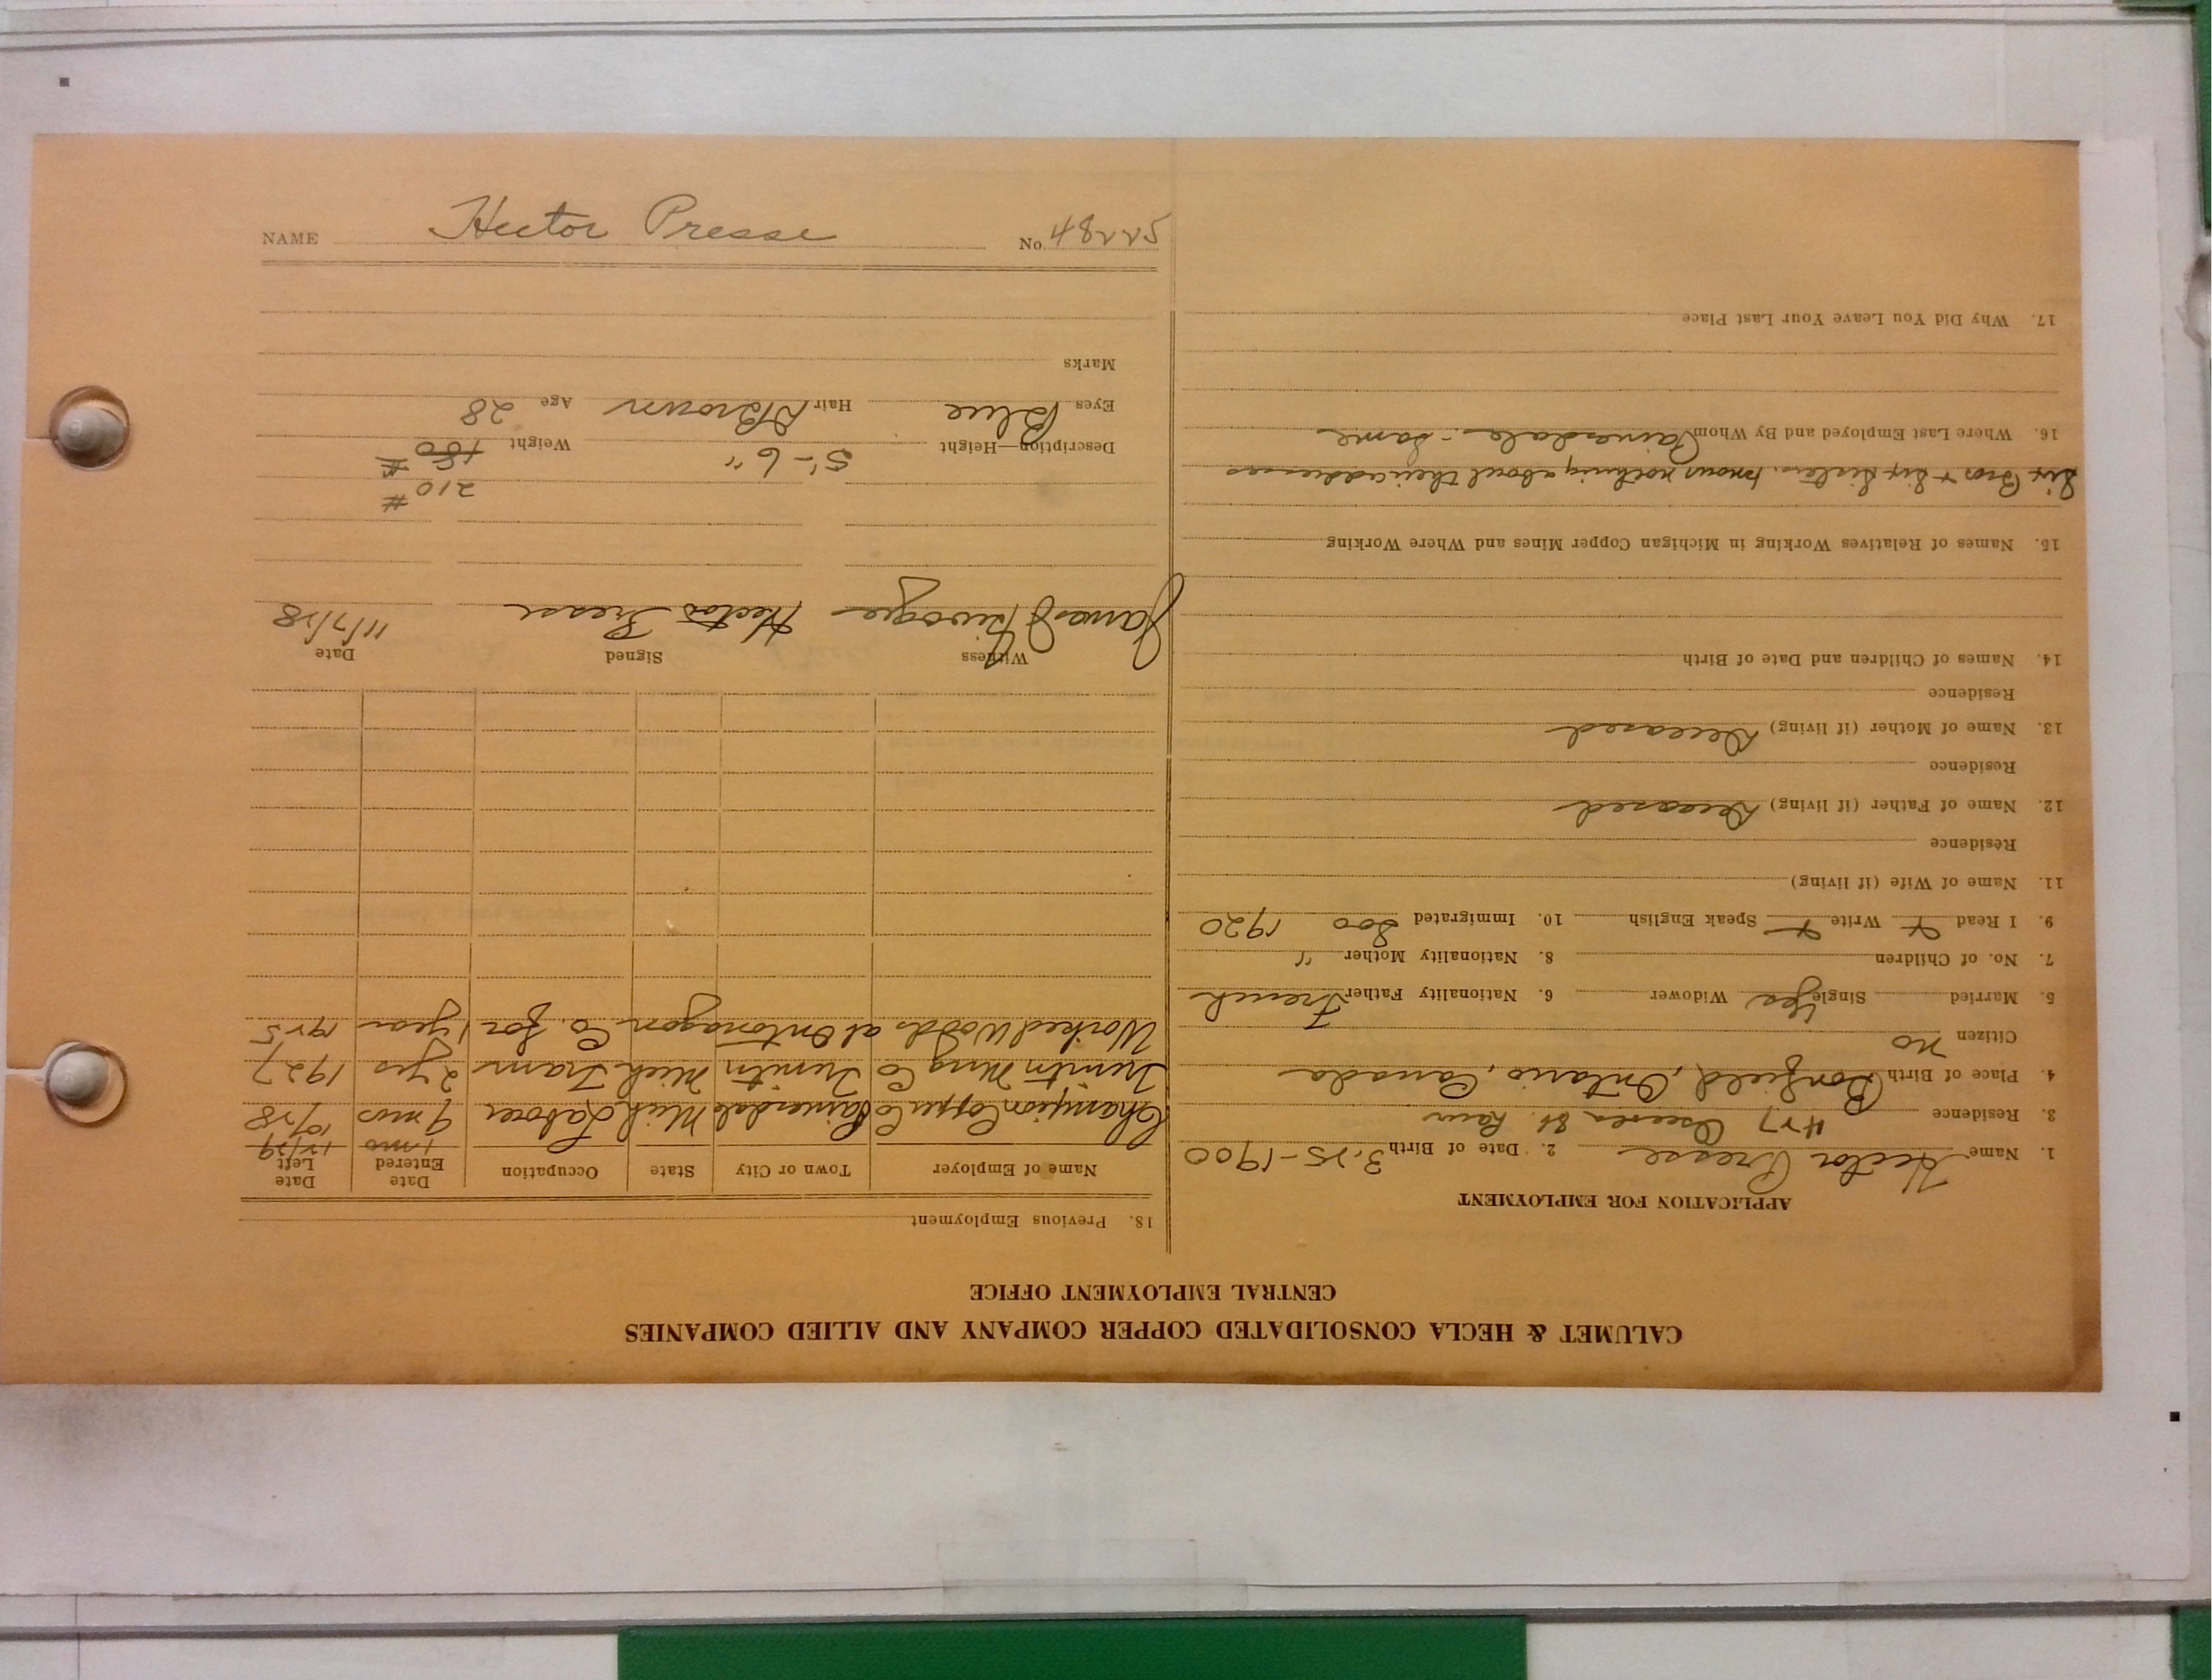 NAME Hector Presse No. 48225
CALUMET & HECLA CONSOLIDATED COPPER COMPANY AND ALLIED COMPANIES
CENTRAL EMPLOYMENT OFFICE
APPLICATION FOR EMPLOYMENT
1. Name Hector Presse 2. Date of Birth 3-25-1900
3. Residence 427 Osceola St. Laur
4. Place of Birth Bonfield, Ontario, Canada
Citizen no
5. Married Single yes Widower 6. Nationality Father French
7. No. of Children 8. Nationality Mother "
9. I Read Write Speak English 10. Immigrated Soo 1920
11. Name of Wife (if living)
Residence
12. Name of Father (if living) Deceased
Residence
13. Name of Mother (if living) Deceased
Residence
14. Names of Children and Date of Birth
15. Names of Relatives Working in Michigan Copper Mines and Where Working
Six Bros + Six Sisters, knows nothing about their addresses
16. Where Last Employed and By Whom Painesdale - same
17. Why Did You Leave Your Last Place
18. Previous Employment
Name of Employer Town or City State Occupation Date Entered Date Left
1 mo 12/29
Champion Copper Co Painesdale Mich Laborer 9 mos 10/28
Trimtn Mng Co Trimtn Mich Tram 2 yrs 1927
Worked Woods at Ontonagon Co. for 1 year 1925
Witness Signed Date
James Hector Presse 11/7/28
210 #
Description—Height 5'-6" Weight 180 #
Eyes Blue Hair D Brown Age 28
Marks